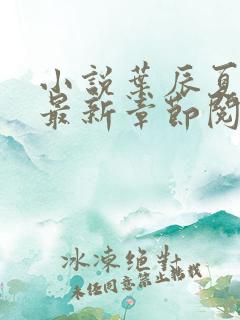 小说叶辰夏
最新章节阅
冰凍绝对
未经同意禁止转载